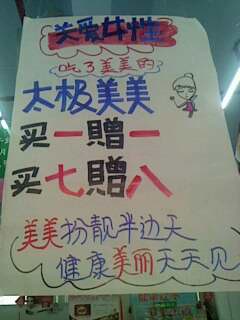 关爱女性
吃了美美的
太极美美
买一赠一
买七赠八
美美扮靓半边天
健康美丽天天见